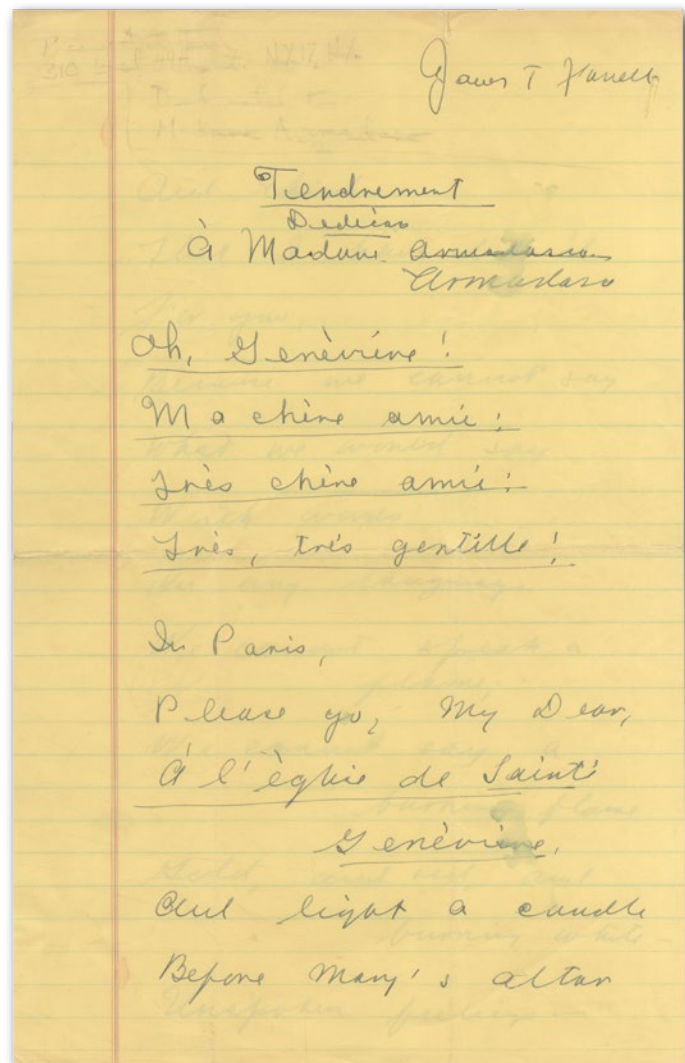 James T Farrell
Tendrement
À Madame
Oh, Genèviève!
Ma chère amie!
Très chère amie!
Très, très gentille!
In Paris,
Please go, My Dear,
À l'èglise de Sainte
Genèviève,
And light a candle
Before Mary's altar